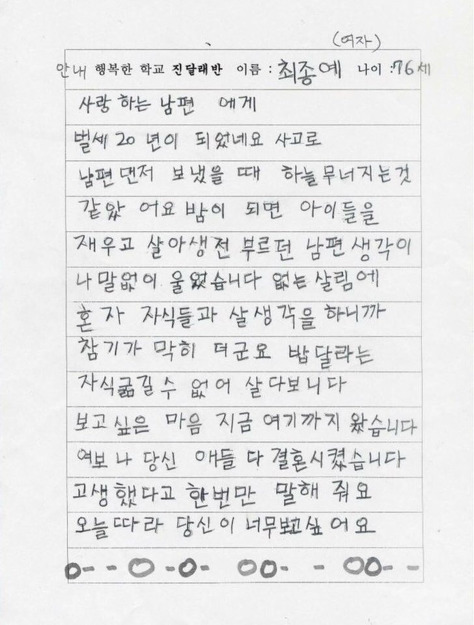 (여자)
안내 행복한 학교 진달래반 이름 : 최종예 나이 : 76세
사랑 하는 남편 에게
벌세 20 년이 되었네요 사고로
남편 댄저 보냈을 때 하늘무너지는것
같았 어요 밤이 되면 아이들을
재우고 살아생전 부르던 남편 생각이
나 말없이 울었습니다 없는 살림에
혼자 자식들과 살생각을 하니까
참기가 막히 더군요 밥달라는
자식굶길수 없어 살다보니다
보고싶은 마음 지금 여기까지 왔습니다
여보 나 당신 애들 다 결혼시켰습니다
고생했다고 한번만 말해 줘요
오늘따라 당신이 너무보고싶어요